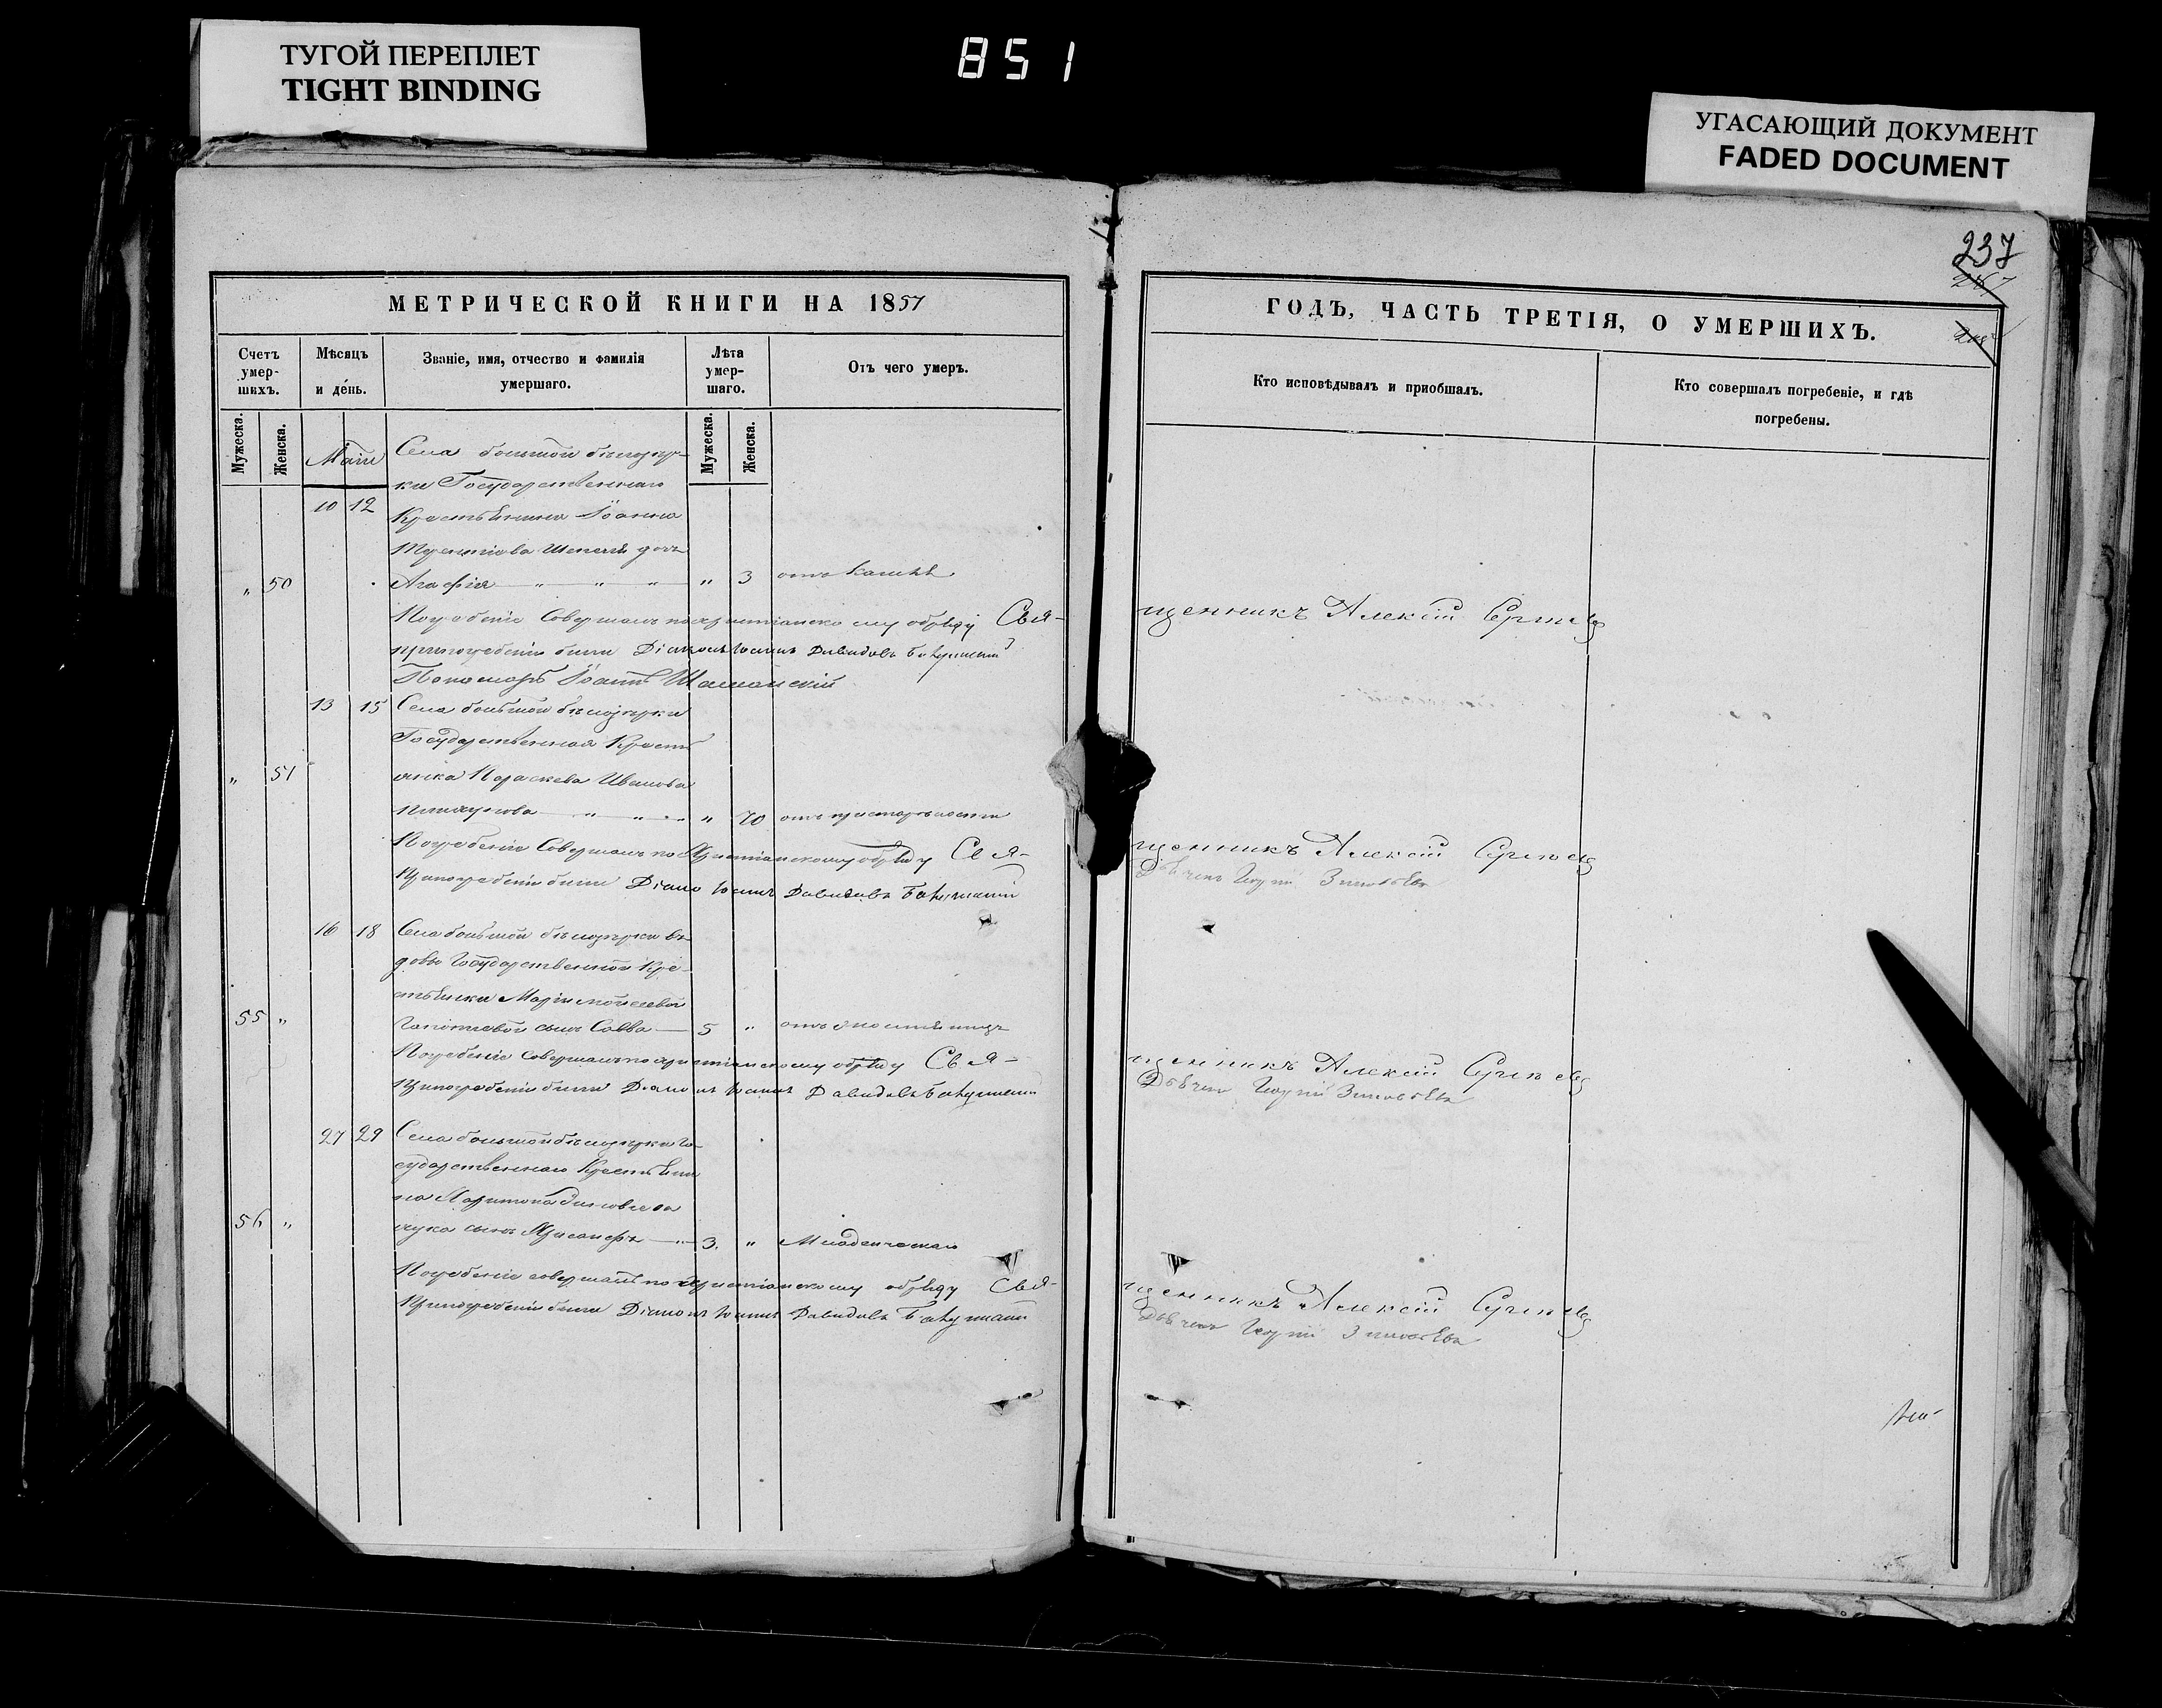 ТУГОЙ ПЕРЕПЛЕТ
TIGHT BINDING
851
УГАСАЮЩИЙ ДОКУМЕНТ
FADED DOCUMENT
237
МЕТРИЧЕСКОЙ КНИГИ НА 1857
ГОДЪ, ЧАСТЬ ТРЕТІЯ, О УМЕРШИХЪ.
Счетъ умер-шихъ.
Мѣсяцъ и де́нь.
Званіе, имя, отчество и фамилія умершаго.
Лѣта умер-шаго.
Отъ чего умеръ.
Кто исповѣдывалъ и пріобшалъ.
Кто совершалъ погребеніе, и гдѣ погребены.
Мужеска.
Женска.
Мужеска.
Женска.
Маій
Села большой бѣлозер-
ки Государственнаго
10 12 Крестьянина Іоанна
Терентіова дочь
„ 50 Агафія „ „ „ „ 3 отъ кашлѣ
Погребеніе Совершалъ по христіанскому обряду Свя-
щенникъ Алексій Сергѣевъ
при погребеніи были Діаконъ Іоаннъ Давидовъ
Пономарь Іоаннъ
13 15 Села большой бѣлозерки
Государственная Кресть
„ 51 янка Параскева Иванова
„ „ 70 отъ престарѣлости
Погребеніе Совершалъ по Христіанскому обряду Свя-
щенникъ Алексій Сергѣевъ
При погребеніи были Діаконъ Іоаннъ Давидовъ
Дьячекъ Георгій Зиновьевъ
16 18 Села большой бѣлозерки въ
довы Государственной Кре-
стьянки Маріи Моисеевой
55 „ сынъ Савва 5 „ отъ
Погребеніе совершалъ по христіанскому обряду Свя-
щенникъ Алексій Сергѣевъ
При погребеніи были Діаконъ Іоаннъ Давидовъ
Дьячекъ Георгій Зиновьевъ
27 29 Села большой бѣлозерки Го-
сударственнаго Крестьяни
на Харитона
56 „ сынъ Хрисанфъ „ 3. „ Младенческаго
Погребеніе совершалъ по Христіанскому обряду Свя-
щенникъ Алексій Сергѣевъ
При погребеніи были Діаконъ Іоаннъ Давидовъ
Дьячекъ Георгій Зиновьевъ